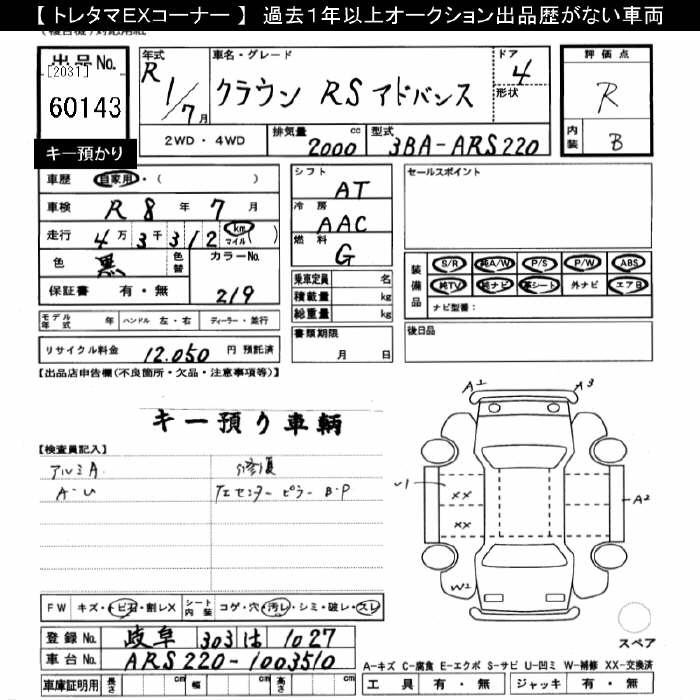 【トレタマEXコーナー】 過去1年以上オークション出品歴がない車両
出品No.
[2031]
60143
キー預かり
年式
R 1/7月
車名・グレード
クラウン RS アドバンス
ドア
4
形状
2WD・4WD
排気量
2000 cc
型式
3BA-ARS220
評価点
R
内装
B
車歴 自家用・( )
車検 R 8 年 7 月
走行 4万 3千 312 km マイル
色 黒
色替
カラーNo.
219
保証書 有・無
シフト
AT
冷房
AAC
燃料
G
乗車定員 名
積載量 kg
総重量 kg
セールスポイント
装備品
S/R 純A/W P/S P/W ABS
純TV 純ナビ 革シート 外ナビ エアB
ナビ型番:
モデル年式 年 ハンドル 左・右 ディーラー・並行
リサイクル料金 12,050 円 預託済
書類期限
月 日
後日品
【出品店申告欄(不良箇所・欠品・注意事項等)】
キー預り車輌
【検査員記入】
アルミA 修復
A・U
センターピラー B・P
A2 A3
U1
XX
XX
A2
W2
スペア
FW キズ・トビ石・割レX シート内装 コゲ・穴・汚レ・シミ・破レ・スレ
登録No. 岐阜 303 は 1027
車台No. ARS220-1003510
車庫証明用 長さ cm 幅 cm 高さ cm
A-キズ C-腐食 E-エクボ S-サビ U-凹ミ W-補修 XX-交換済
工具 有・無 ジャッキ 有・無